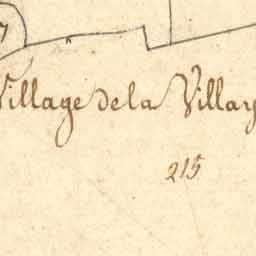 Village de la Villay
215